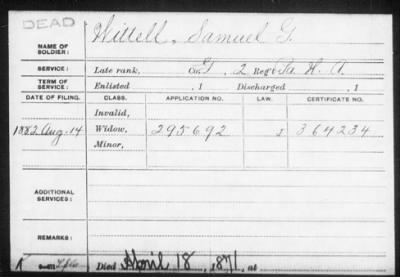 DEAD
NAME OF SOLDIER: Willell, Samuel G.
SERVICE: Late rank, Co. G, 2 Reg't Pa. H. A.
TERM OF SERVICE: Enlisted , 1 Discharged , 1
DATE OF FILING. CLASS. APPLICATION NO. LAW. CERTIFICATE NO.
Invalid,
1882 Aug. 14 Widow, 295692 364234
Minor,
ADDITIONAL SERVICES:
REMARKS:
Died April 18, 1871, at